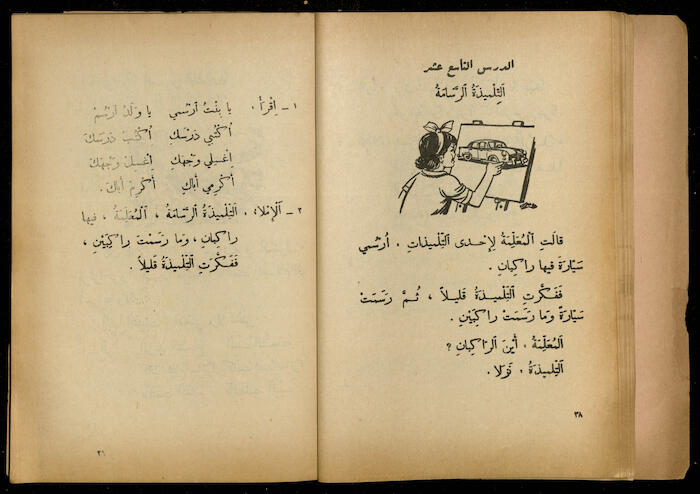 الدرس التاسع عشر
اَلتِّلْميذَةُ اَلرَّسّامَةُ
قالَتِ اَلْمُعَلِّمَةُ لِإِحْدى اَلتِّلْميذاتِ . أُرْسُمي
سَيّارَةً فيها راكِبانِ .
فَفَكَّرَتِ اَلتِّلْميذَةُ قَليلاً ، ثُمَّ رَسَمَتْ
سَيّارَةً وَما رَسَمَتْ راكِبَيْنِ .
اَلْمُعَلِّمَةُ . أَيْنَ اَلرّاكِبانِ ؟
اَلتِّلْميذَةُ . نَزَلا .
٣٨
١ ـ اِقْرَأْ . يا بِنْتُ اُرْسُمي يا وَلَدُ اُرْسُمْ
اُكْتُبي دَرْسَكِ اُكْتُبْ دَرْسَكَ
اِغْسِلي وَجْهَكِ اِغْسِلْ وَجْهَكَ
أَكْرِمي أَباكِ أَكْرِمْ أَباكَ .
٢ ـ اَلْإِمْلاء . اَلتِّلْميذَةُ اَلرَّسّامَةُ ، اَلْمُعَلِّمَةُ ، فيها
راكِبانِ ، وَما رَسَمَتْ راكِبَيْنِ ،
فَفَكَّرَتِ اَلتِّلْميذَةُ قَليلاً .